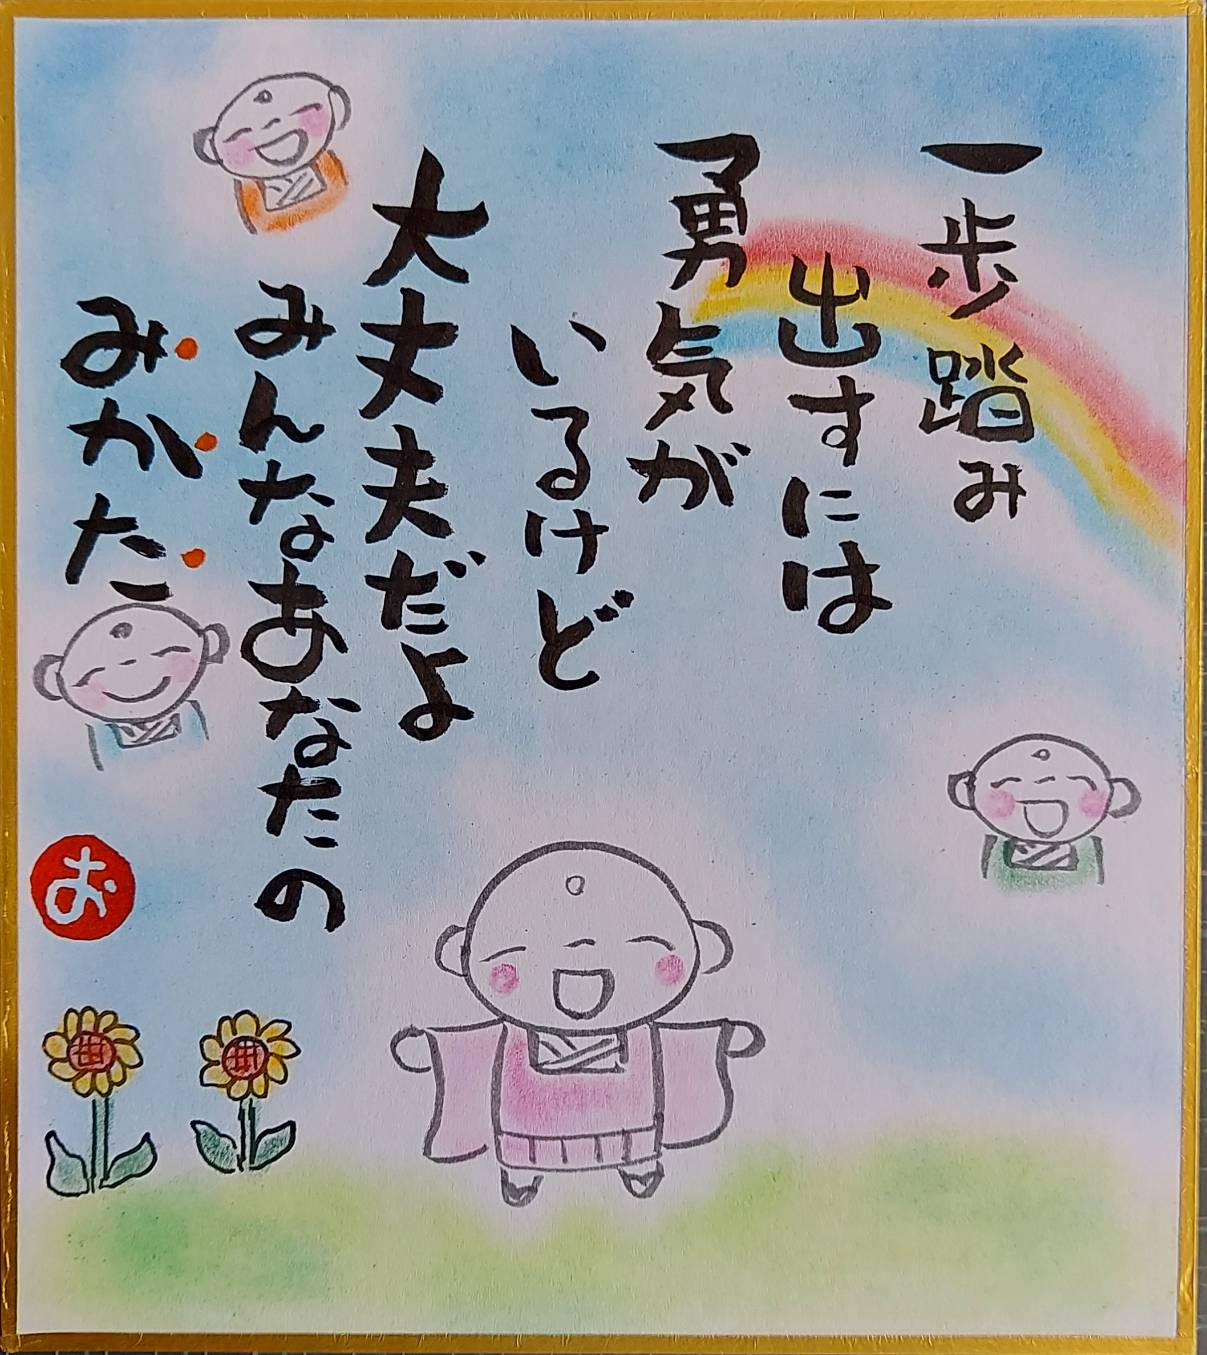 一歩踏み
出すには
勇気が
いるけど
大丈夫だよ
みんなあなたの
みかた
お